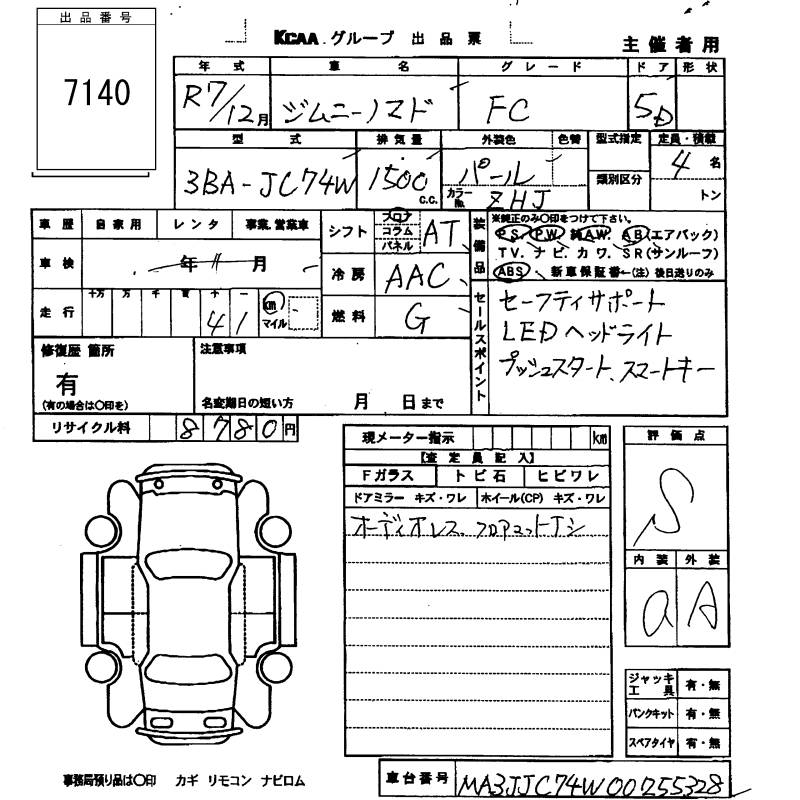 出品番号
7140
KCAA グループ 出品票
主催者用
年式 車名 グレード ドア 形状
R7/12月 ジムニーノマド FC 5D
型式 排気量 外装色 色替 型式指定 定員・積載
3BA-JC74W 1500 C.C. パール カラーNo. ZHJ 類別区分 4 名 トン
車歴 自家用 レンタ 事業、営業車
車検 年 月
走行 十万 万 千 百 十 一 41 km マイル
シフト フロア コラム パネル AT
冷房 AAC
燃料 G
装備品 ※純正のみ〇印をつけて下さい。
PS. PW. 純AW. AB(エアバック)
TV. ナビ. カワ. SR(サンルーフ)
ABS 新車保証書←(注) 後日送りのみ
セールスポイント
セーフティサポート
LEDヘッドライト
プッシュスタート、スマートキー
修復歴 箇所
有
(有の場合は〇印を)
注意事項
名変期日の短い方 月 日まで
リサイクル料 8780円
現メーター指示 km
【査定員記入】
Fガラス トビ石 ヒビワレ
ドアミラー キズ・ワレ ホイール(CP) キズ・ワレ
オーディオレス、フロアマットナシ
評価点
S
内装 外装
a A
ジャッキ工具 有・無
パンクキット 有・無
スペアタイヤ 有・無
事務局預り品は〇印 カギ リモコン ナビロム
車台番号 MA3JJC74W00255328